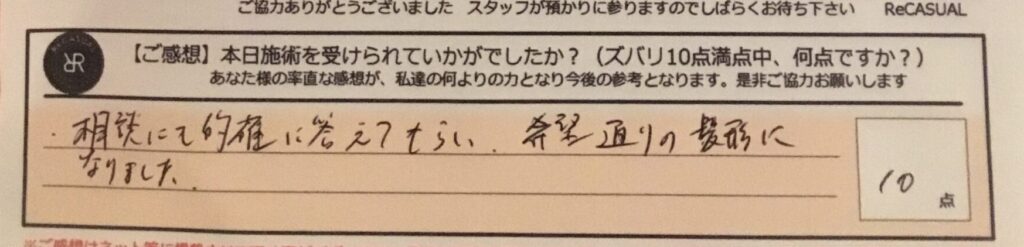 ご協力ありがとうございました スタッフが預かりに参りますのでしばらくお待ち下さい ReCASUAL
【ご感想】本日施術を受けられていかがでしたか？（ズバリ10点満点中、何点ですか？）
あなた様の率直な感想が、私達の何よりの力となり今後の参考となります。是非ご協力お願いします
・相談にも的確に答えてもらい、希望通りの髪形に
なりました。
10 点